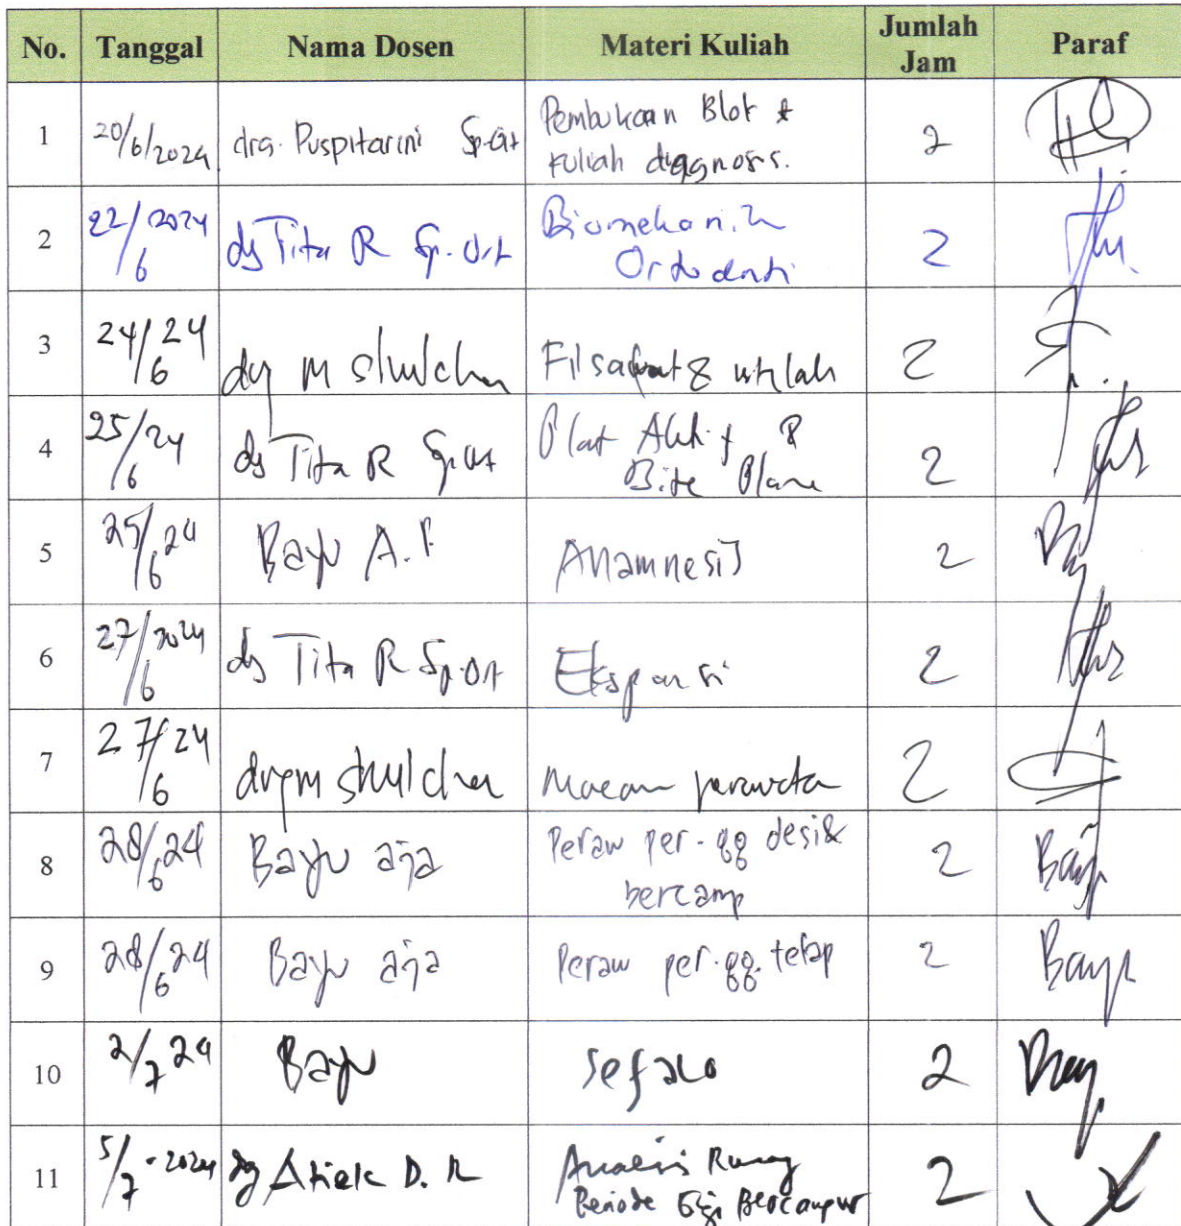 No. Tanggal Nama Dosen Materi Kuliah Jumlah Jam Paraf
1 20/6/2024 drg. Puspitarini Sp.Ort Pembukaan Blok & 2
kuliah diagnosis.
2 22/6 2024 drg Tita R Sp.Ort Biomekanik 2
Ortodonti
3 24/6 24 drg M Shulchan Filsafat & istilah 2
4 25/6 24 drg Tita R Sp.Ort Plat Aktif & 2
Bite Plane
5 25/6 24 Bayu A.P Anamnesis 2
6 27/6 2024 drg Tita R Sp.Ort Ekspansi 2
7 27/6 24 drg M Shulchan Macam perawata 2
8 28/6 24 Bayu aja Peraw per. gg desi & 2 Bayu
bercamp
9 28/6 24 Bayu aja Peraw per. gg. tetap 2 Bayu
10 2/7 24 Bayu Sefalo 2
11 5/7-2024 drg Atiek D. R Analisis Ruang 2
Periode Gigi Bercampur